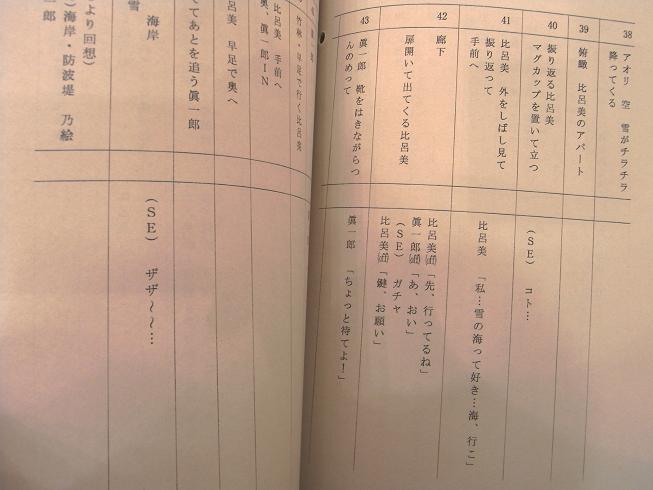 38
アオリ 空 雪がチラチラ
降ってくる
39
俯瞰 比呂美のアパート
40
振り返る比呂美
マグカップを置いて立つ
(SE) コト…
41
比呂美 外をしばし見て
振り返って
手前へ
比呂美 「私…雪の海って好き…海、行こ」
42
廊下
扉開いて出てくる比呂美
比呂美㈺「先、行ってるね」
眞一郎㈺「あ、おい」
(SE) ガチャ
比呂美㈺「鍵、お願い」
43
眞一郎 靴をはきながらつ
んのめって
眞一郎 「ちょっと待てよ!」
竹林・早足で行く比呂美
比呂美 手前へ
奥、眞一郎IN
呂美 早足で奥へ
てあとを追う眞一郎
海岸
雪
(SE) ザザ~~…
より回想)
)海岸・防波堤 乃絵
一郎